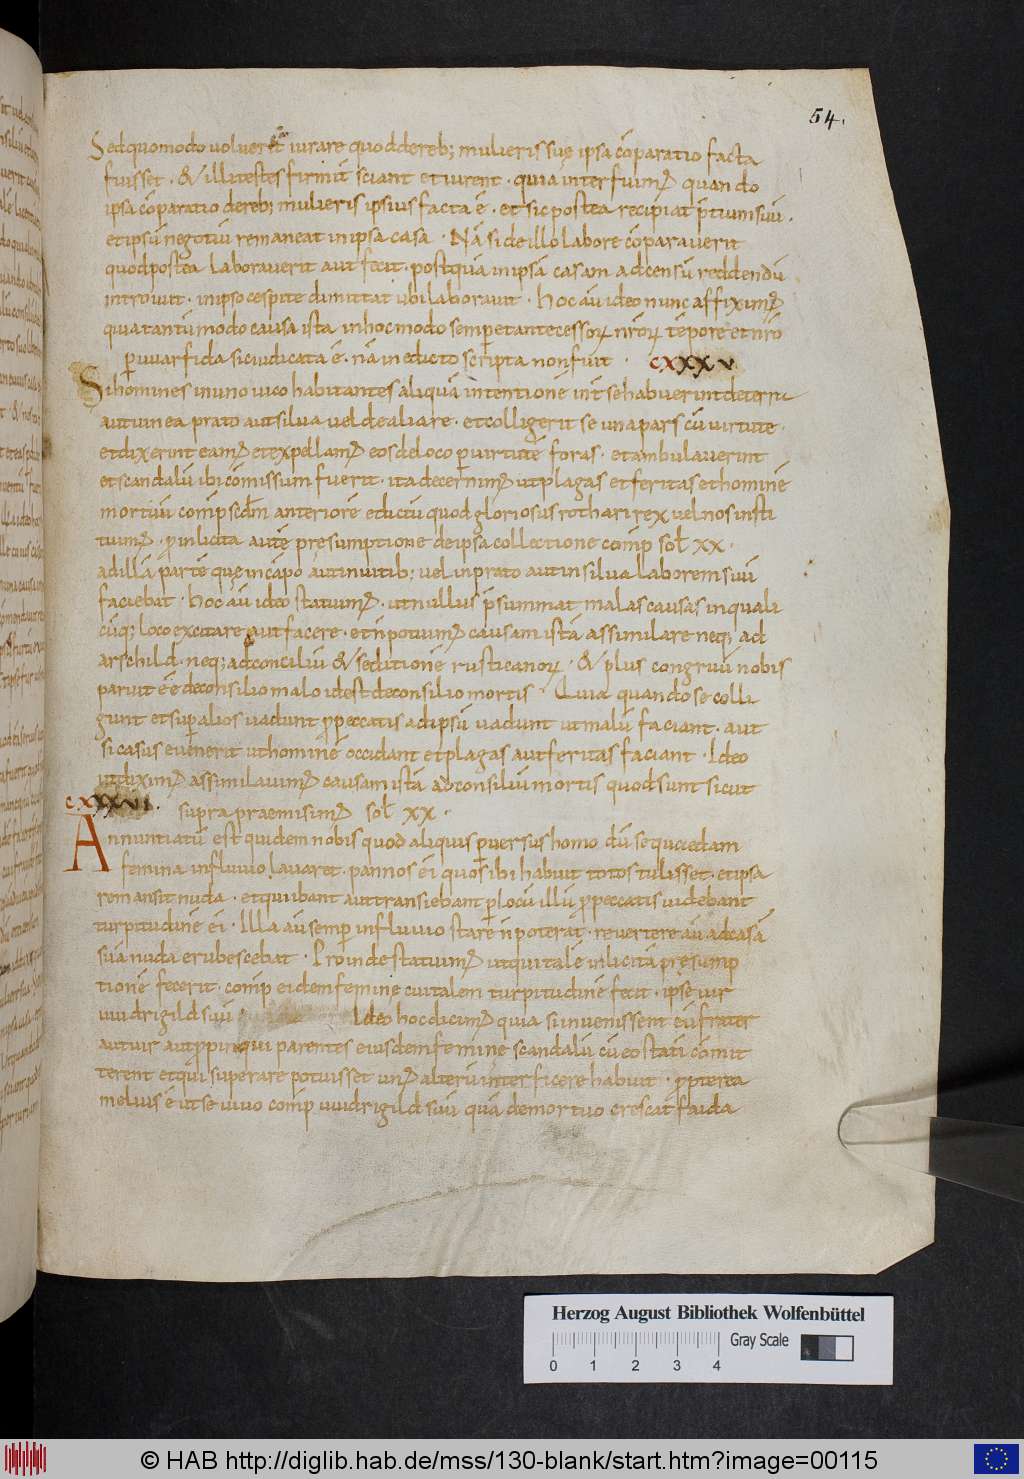 54.
Sed quomodo voluerit iurare quod de reb; mulieris suę ipsa cōparatio facta
fuisset. & illi testes firmit̄ sciant et iurent. quia interfuimꝰ quando
ipsa cōparatio de reb; mulieris ipsius facta ē. et sic postea recipiat p̄tium suū.
et ipsū negotiū remaneat in ipsa casa. Nā si de illo labore cōparaverit
quod postea laboraverit aut fecit. postquā in ipsā casam ad censū reddendū
introivit. in ipso cespite dimittat ubi laboravit. hoc aū ideo nunc affiximꝰ
quia tantūmodo causa ista in hoc modo semp̱ et antecessoꝝ nr̄oꝝ tēpore et nr̄o
p̱ wuarfida sic iudicata ē. nā in edicto scripta non fuit. CXXXV
Si homines in uno vico habitantes aliquā intentionē int̄ se habuerint de terra
aut vinea prato aut silva vel de alia re. et colligerit se una pars cū virtute.
et dixerint eamꝰ et expellamꝰ eos de loco p̱ virtutē foras. et ambulaverint
et scandalū ibi cōmissum fuerit. ita decernimꝰ ut plagas et feritas et hominē
mortuū comp̄ scd̄m anteriorē edictū quod gloriosus rothari rex vel nos insti
tuimꝰ. pro inlicita autē presumptione de ipsa collectione comp̄ sol̄ xx.
ad illā partē quę in cāpo aut in vitib; vel in prato aut in silva laborem suū
faciebat. hoc aū ideo statuimꝰ. ut nullus p̄summat malas causas in quali
cūq; loco excitare aut facere. et n̄ potuimꝰ causam istā assimilare neq; ad
arschild. neq; ad conciliū & seditionē rusticanoꝝ. & plus congruū nobis
paruit ēē de consilio malo id est de consilio mortis. Quia quando se colli
gunt et sup̱ alios vadunt ꝓ peccatis ad ipsū vadunt ut malū faciant. aut
si casus evenerit ut hominē occidant et plagas aut feritas faciant. Ideo
ut diximꝰ assimilavimꝰ causam istā ad consiliū mortis quod sunt sicut
CXXXVI. supra praemisimꝰ sol̄ xx.
Annuntiatū est quidem nobis quod aliquis p̱versus homo dū se quędam
femina in fluvio lavaret. pannos ei quos ibi habuit totos tulisset. et ipsa
remansit nuda. et qui ibant aut transiebant p̱ locū illū ꝓ peccatis videbant
turpitudinē ei. Illa aū semp̱ in fluvio stare n̄ poterat. revertere aū ad casā
suā nuda erubescebat. Proinde statuimꝰ ut qui talē inlicitā presump
tionē fecerit. comp̄ eidem feminę cui talem turpitudinē fecit. ipse vir
wuidrigild suū. Ideo hoc dicimꝰ quia si invenissent eū frater
aut vir aut ꝓpinqui parentes eiusdem feminę scandalū cū eo stati cōmit
terent et qui superare potuisset unꝰ alterū interficere habuit. ꝓpterea
melius ē ut se vivo comp̄ wuidrigild suū quā de mortuo crescat faida
Herzog August Bibliothek Wolfenbüttel
0 1 2 3 4 Gray Scale
© HAB http://diglib.hab.de/mss/130-blank/start.htm?image=00115